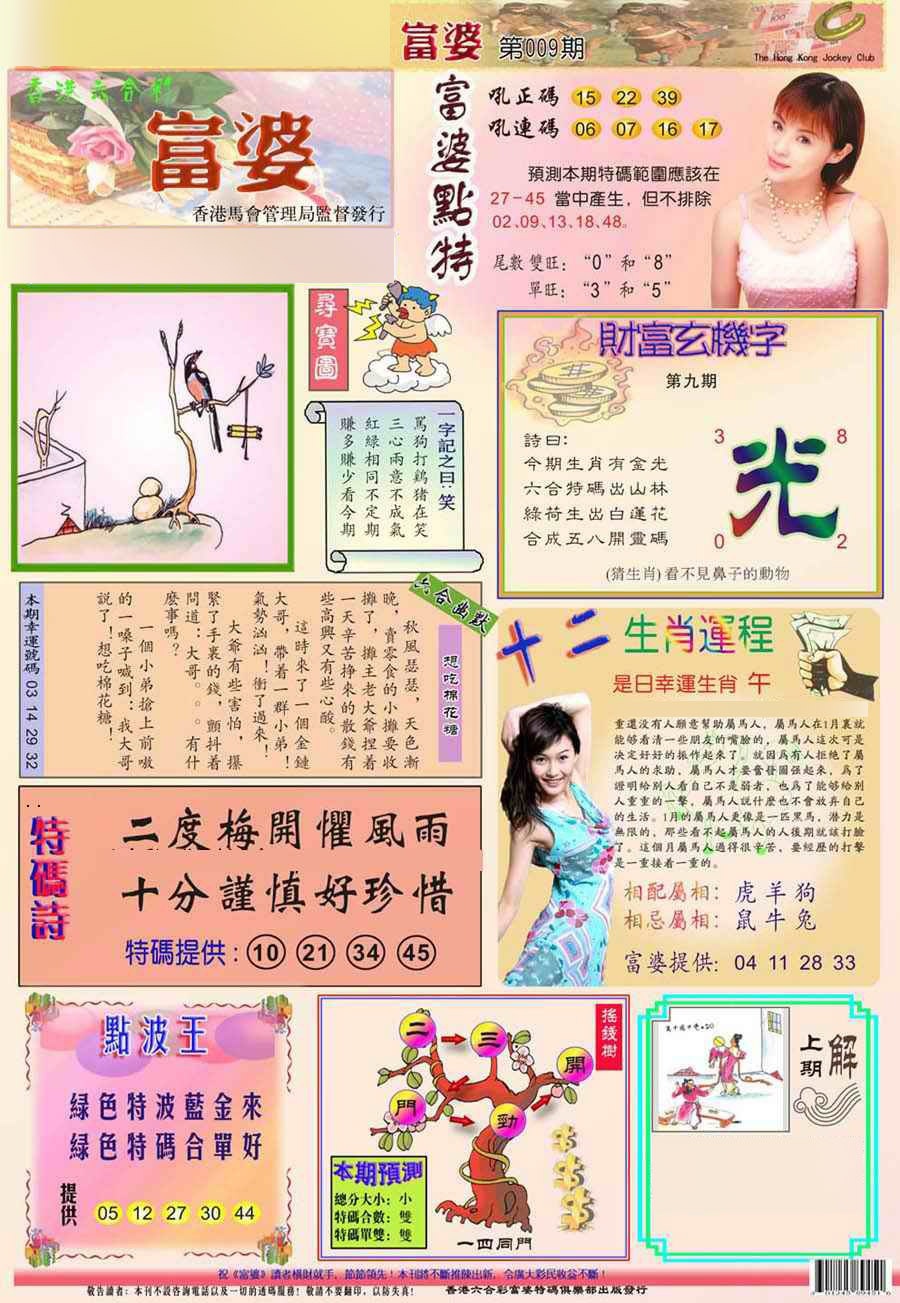 富婆 第009期
The Hong Kong Jockey Club
香港六合彩
富婆
香港馬會管理局監督發行
富婆點特
吼正碼 15 22 39
吼連碼 06 07 16 17
預測本期特碼範圍應該在
27-45 當中產生，但不排除
02、09、13、18、48。
尾數雙旺：“0”和“8”
單旺：“3”和“5”
尋寶圖
一字記之曰：笑
罵狗打鷄猪在笑
三心兩意不成氣
紅緑相同不定期
賺多賺少看今期
財富玄機字
第九期
詩曰：
今期生肖有金光
六合特碼出山林
綠荷生出白蓮花
合成五八開靈碼
3 8
光
0 2
(猜生肖)看不見鼻子的動物
六合幽默
想吃棉花糖
秋風瑟瑟，天色漸
晚，賣零食的小攤要收
攤了，攤主老大爺捏着
一天辛苦挣來的散錢有
些高興又有些心酸。
這時來了一個金鏈
大哥，帶着一群小弟！
氣勢汹汹！衝了過來！
大爺有些害怕，攥
緊了手裏的錢，顫抖着
問道：大哥。。。有什
麽事嗎？
一個小弟搶上前嗷
的一嗓子喊到：我大哥
説了！想吃棉花糖！
本期幸運號碼 03 14 29 32
十二生肖運程
是日幸運生肖 午
重還没有人願意幫助屬馬人，屬馬人在1月裏就
能够看清一些朋友的嘴臉的，屬馬人這次可是
决定好好的振作起來了，就因爲有人拒絶了屬
馬人的求助，屬馬人才要奮發圖强起來，爲了
證明給别人看自己不是弱者，也爲了能够給别
人重重的一擊，屬馬人説什麽也不會放弃自己
的生活。1月的屬馬人更像是一匹黑馬，潜力是
無限的，那些看不起屬馬人的人後期就該打臉
了。這個月屬馬人過得很辛苦，要經歷的打擊
是一重接着一重的。
相配屬相：虎羊狗
相忌屬相：鼠牛兔
富婆提供：04 11 28 33
特碼詩
二度梅開懼風雨
十分謹慎好珍惜
特碼提供：10 21 34 45
點波王
緑色特波藍金來
緑色特碼合單好
提供 05 12 27 30 44
摇錢樹
二 三 開
門 勁
本期預測
總分大小：小
特碼合數：雙
特碼單雙：雙
一四同門
上期解
祝《富婆》讀者橫財就手，節節領先！本刊將不斷推陳出新，令廣大彩民收益不斷！
敬告讀者：本刊不設咨詢電話以及一切的透碼服務！敬請不要翻印，以防失真！ 香港六合彩富婆特碼俱樂部出版發行